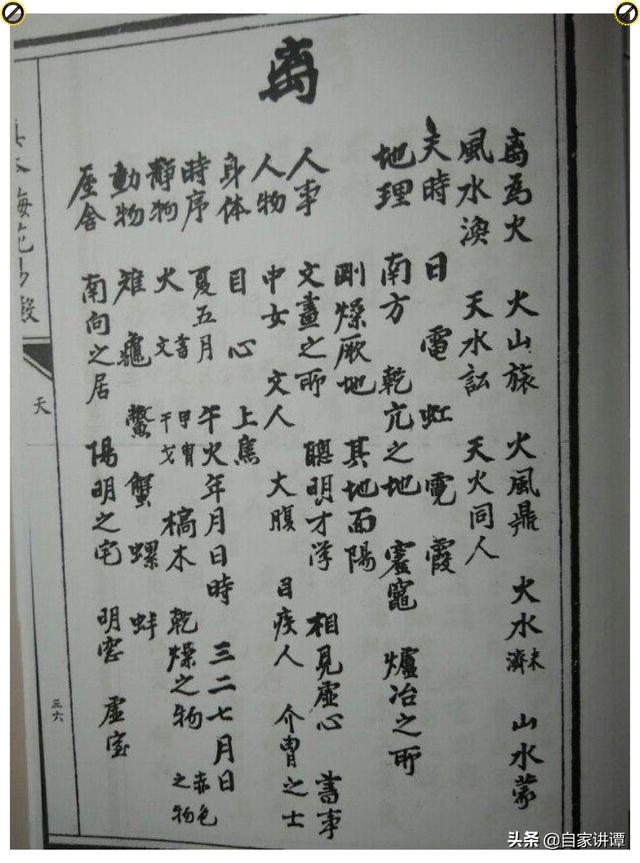 离
离為火 火山旅 火風鼎 火水未濟 山水蒙
風水渙 天水訟 天火同人
天時 日 電 虹 霓 霞
地理 南方 乾亢之地 窰竈 爐冶之所
剛燥厥地 其地面陽
人事 文畫之所 聰明才学 相見虛心 書事
人物 中女 文人 大腹 目疾人 介冑之士
身体 目 心 上焦
時序 夏五月 午火年月日時 三二七月日
静物 火 文書 甲冑干戈 槁木 乾燥之物 赤色之物
動物 雉 龜 鱉 蟹 螺 蚌
屋舍 南向之居 陽明之宅 明窓 虛室
天
三六
头条 @自家讲谭